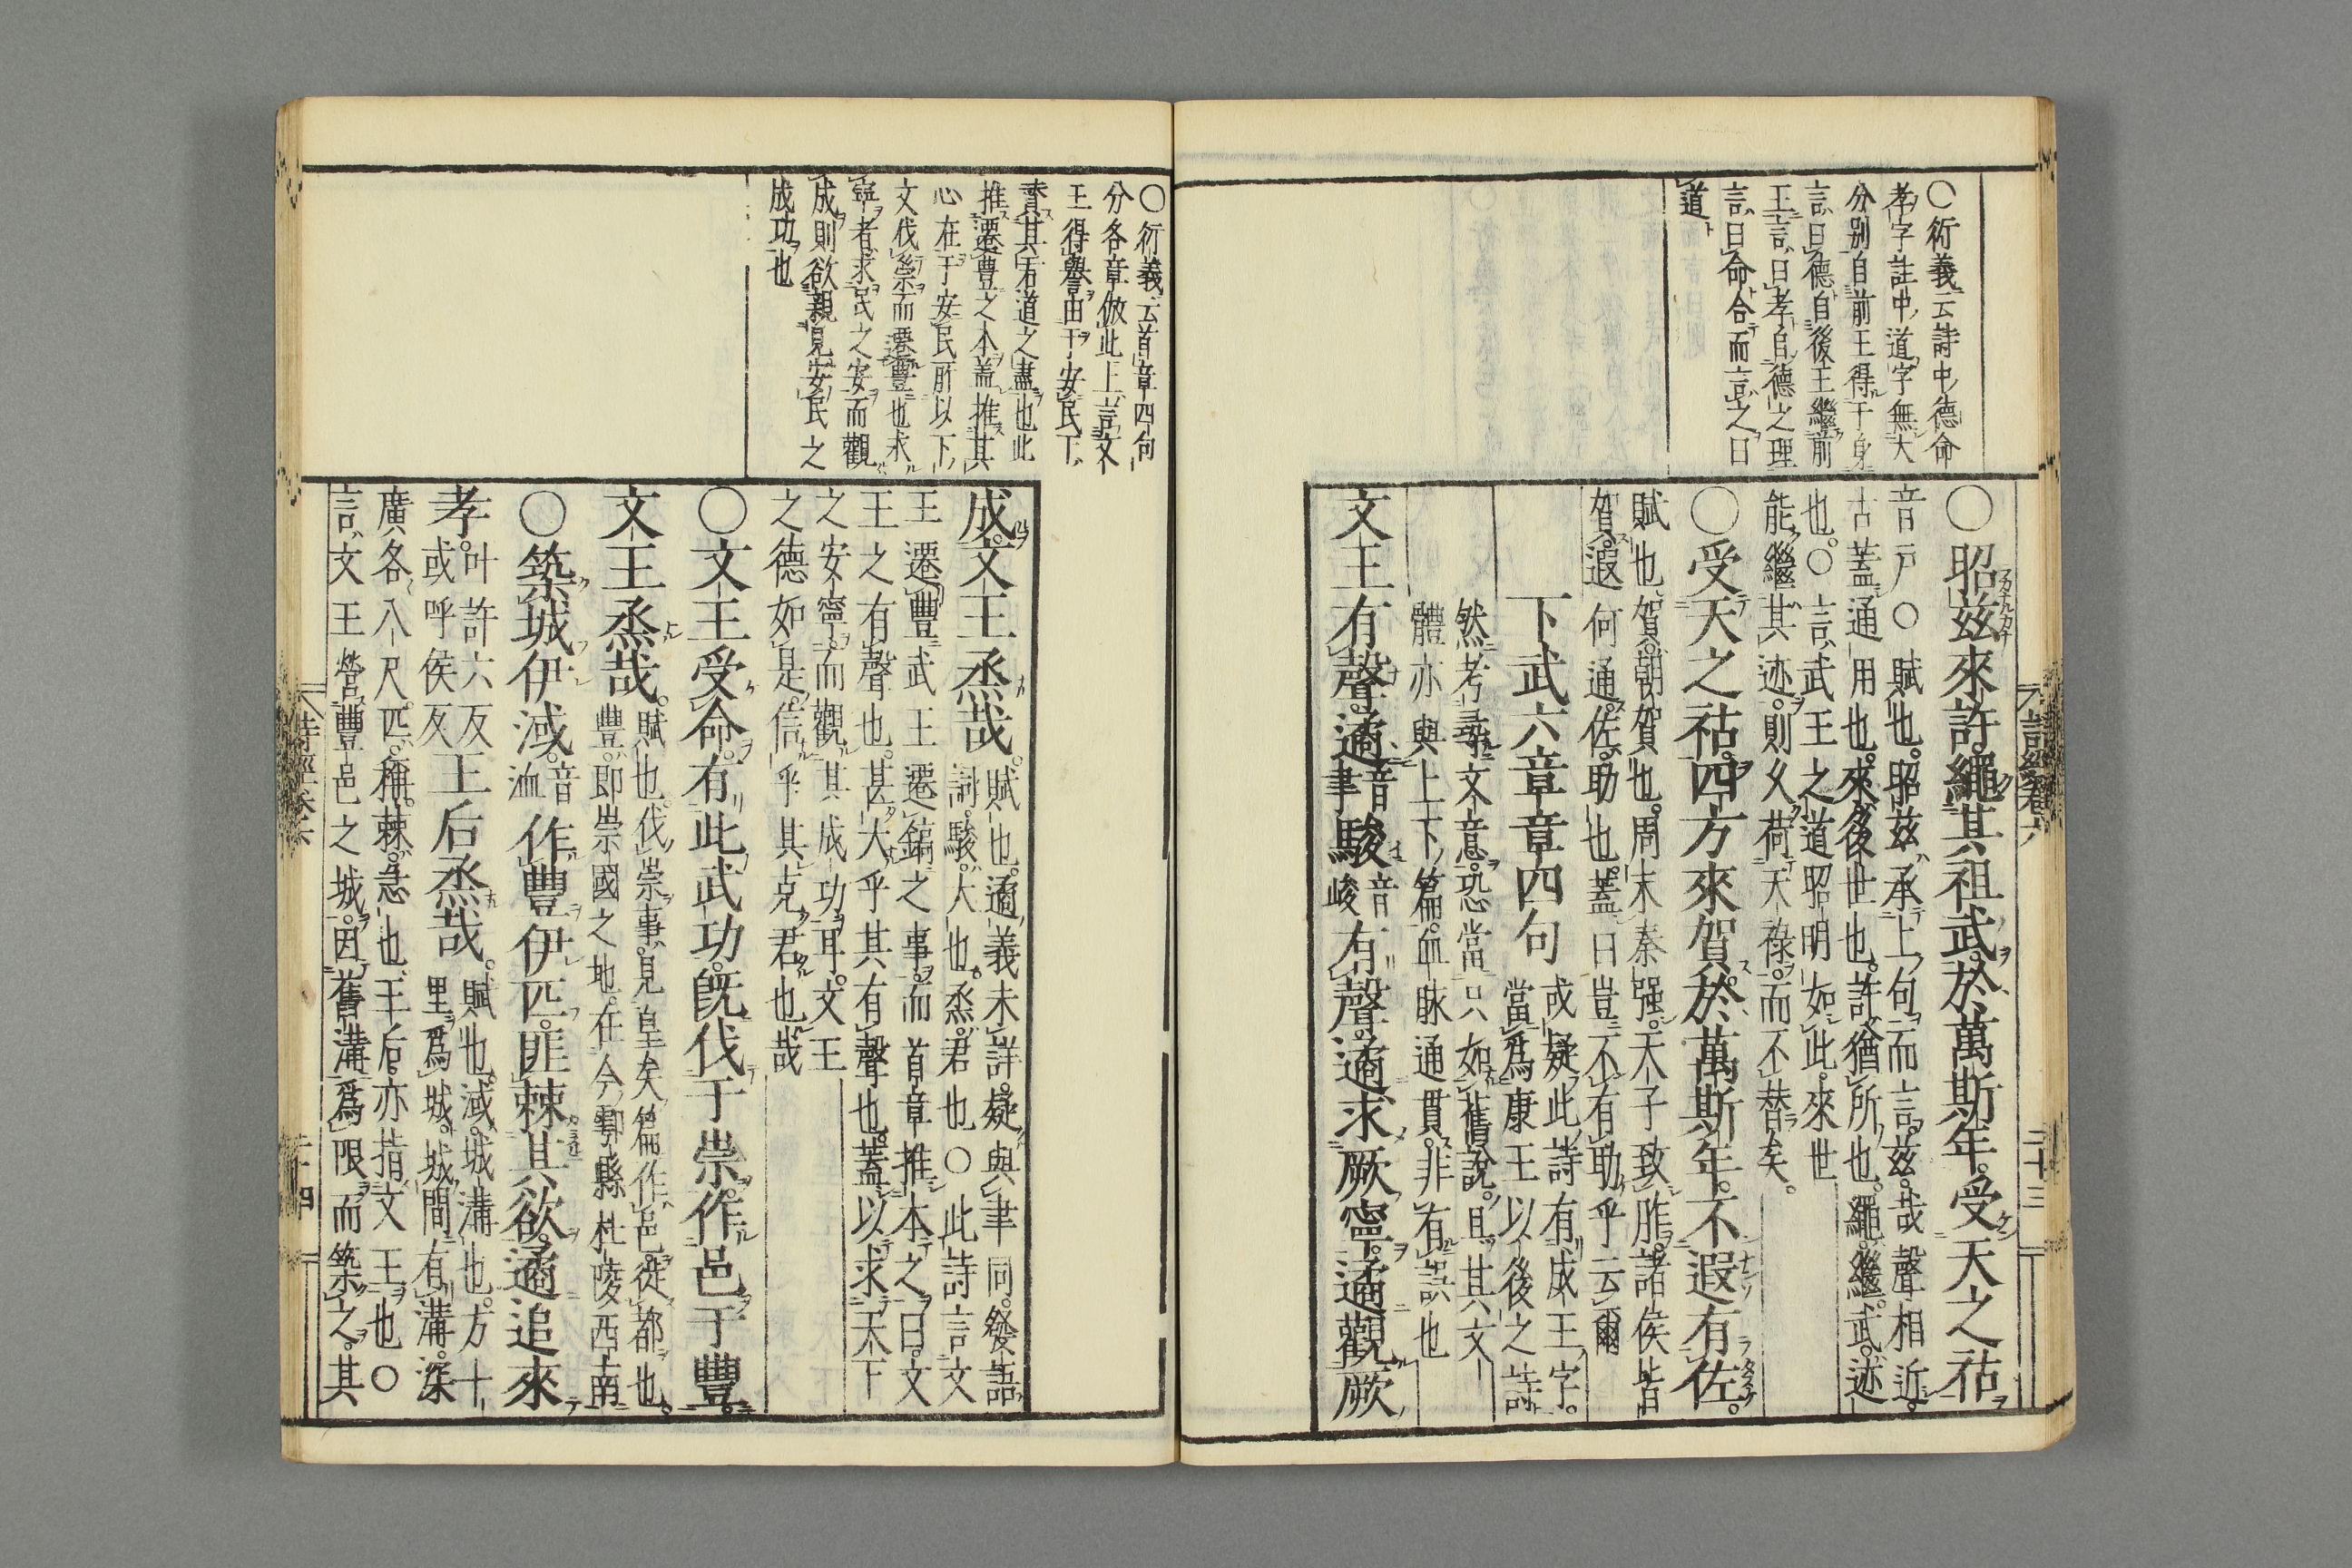 ○衍義云詩中德命
孝字註中道字無大
分别自前王得于身
言曰德自後王繼前
王言曰孝自德之理
言曰命合而言之曰
道
○昭兹來許繩其祖武於萬斯年受天之祜
音戸○賦也昭兹承上句而言兹哉聲相近
古蓋通用也來後世也許猶所也繩繼武迹
也○言武王之道昭明如此來世
能繼其迹則久荷天祿而不替矣
○受天之祜四方來賀於萬斯年不遐有佐
賦也賀朝賀也周末秦强天子致胙諸侯皆
賀遐何通佐助也蓋曰豈不有助乎云爾
下武六章章四句
或疑此詩有成王字
當爲康王以後之詩
然考尋文意恐當只如舊說且其文
體亦與上下篇血脉通貫非有誤也
文王有聲遹音聿駿音峻有聲遹求厥寧遹觀厥
詩經卷六
二十三
○衍義云首章四句
分各章倣此上言文
王得譽由于安民下
賛其君道之盡也此
推遷豊之本蓋推其
心在于安民所以下
文伐崇而遷豊也求
寧者求民之安而觀
成則欲親見安民之
成功也
成文王烝哉
賦也遹義未詳疑與聿同發語
詞駿大也烝君也○此詩言文
王遷豐武王遷鎬之事而首章推本之曰文
王之有聲也甚大乎其有聲也蓋以求天下
之安寧而觀其成功耳文王
之德如是信乎其克君也哉
○文王受命有此武功旣伐于崇作邑于豐
文王烝哉
賦也伐崇事見皇矣篇作邑徙都也
豐即崇國之地在今鄠縣杜陵西南
○築城伊淢音洫作豐伊匹匪棘其欲遹追來
孝叶許六反或呼侯反王后烝哉
賦也淢城溝也方十
里爲城城間有溝深
廣各八尺匹稱棘急也王后亦指文王也○
言文王營豐邑之城因舊溝爲限而築之其
詩經卷六
二十四